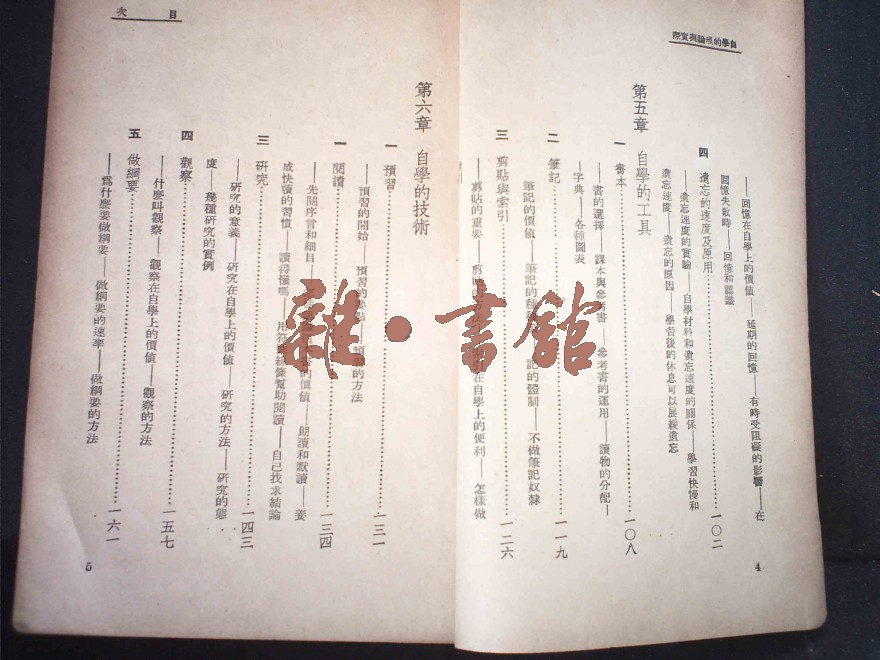 自學的理論與實際
——回憶在自學上的價値——延期的回憶——有時受阻礙的影響——在
回憶失敗時——回憶和認識
四 遺忘的速度及原用……一〇二
遺忘速度的實驗——自學材料和遺忘速度的關係——學習快慢和
遺忘速度——遺忘的原因——學習後的休息可以展緩遺忘
第五章 自學的工具
一 書本……一〇八
——書的選擇——課本與參考書——參考書的運用——讀物的分配——
字典——各種圖表
二 筆記……一一九
筆記的價値——筆記的種 記的體制——不做筆記奴隸
三 剪貼與索引……一二六
——剪貼的重要——剪貼的 在自學上的便利——怎樣做
4
目次
第六章 自學的技術
一 預習……一三一
——預習的開始——預習的要點——預習的方法
一 閱讀……一三四
——先閱序言和細目—— 的價値——朗讀和默讀——養
成快讀的習慣——讀得懂嗎——用符 線條幫助閱讀——自己找求結論
三 研究……一四三
——研究的意義——研究在自學上的價値——研究的方法——研究的態
度——幾種研究的實例
四 觀察……一五七
——什麼叫觀察——觀察在自學上的價値——觀察的方法
五 做綱要……一六一
——爲什麼要做綱要——做綱要的速率——做綱要的方法
5
雜·書館